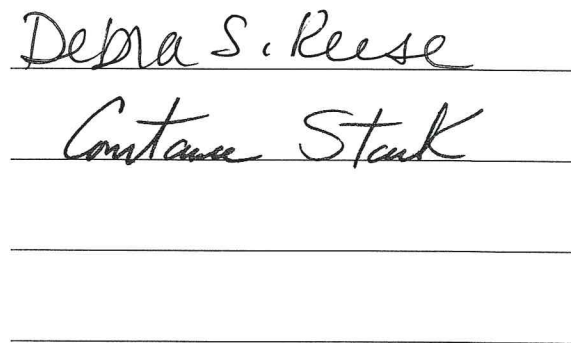 Debra S. Reese
Constance Stark